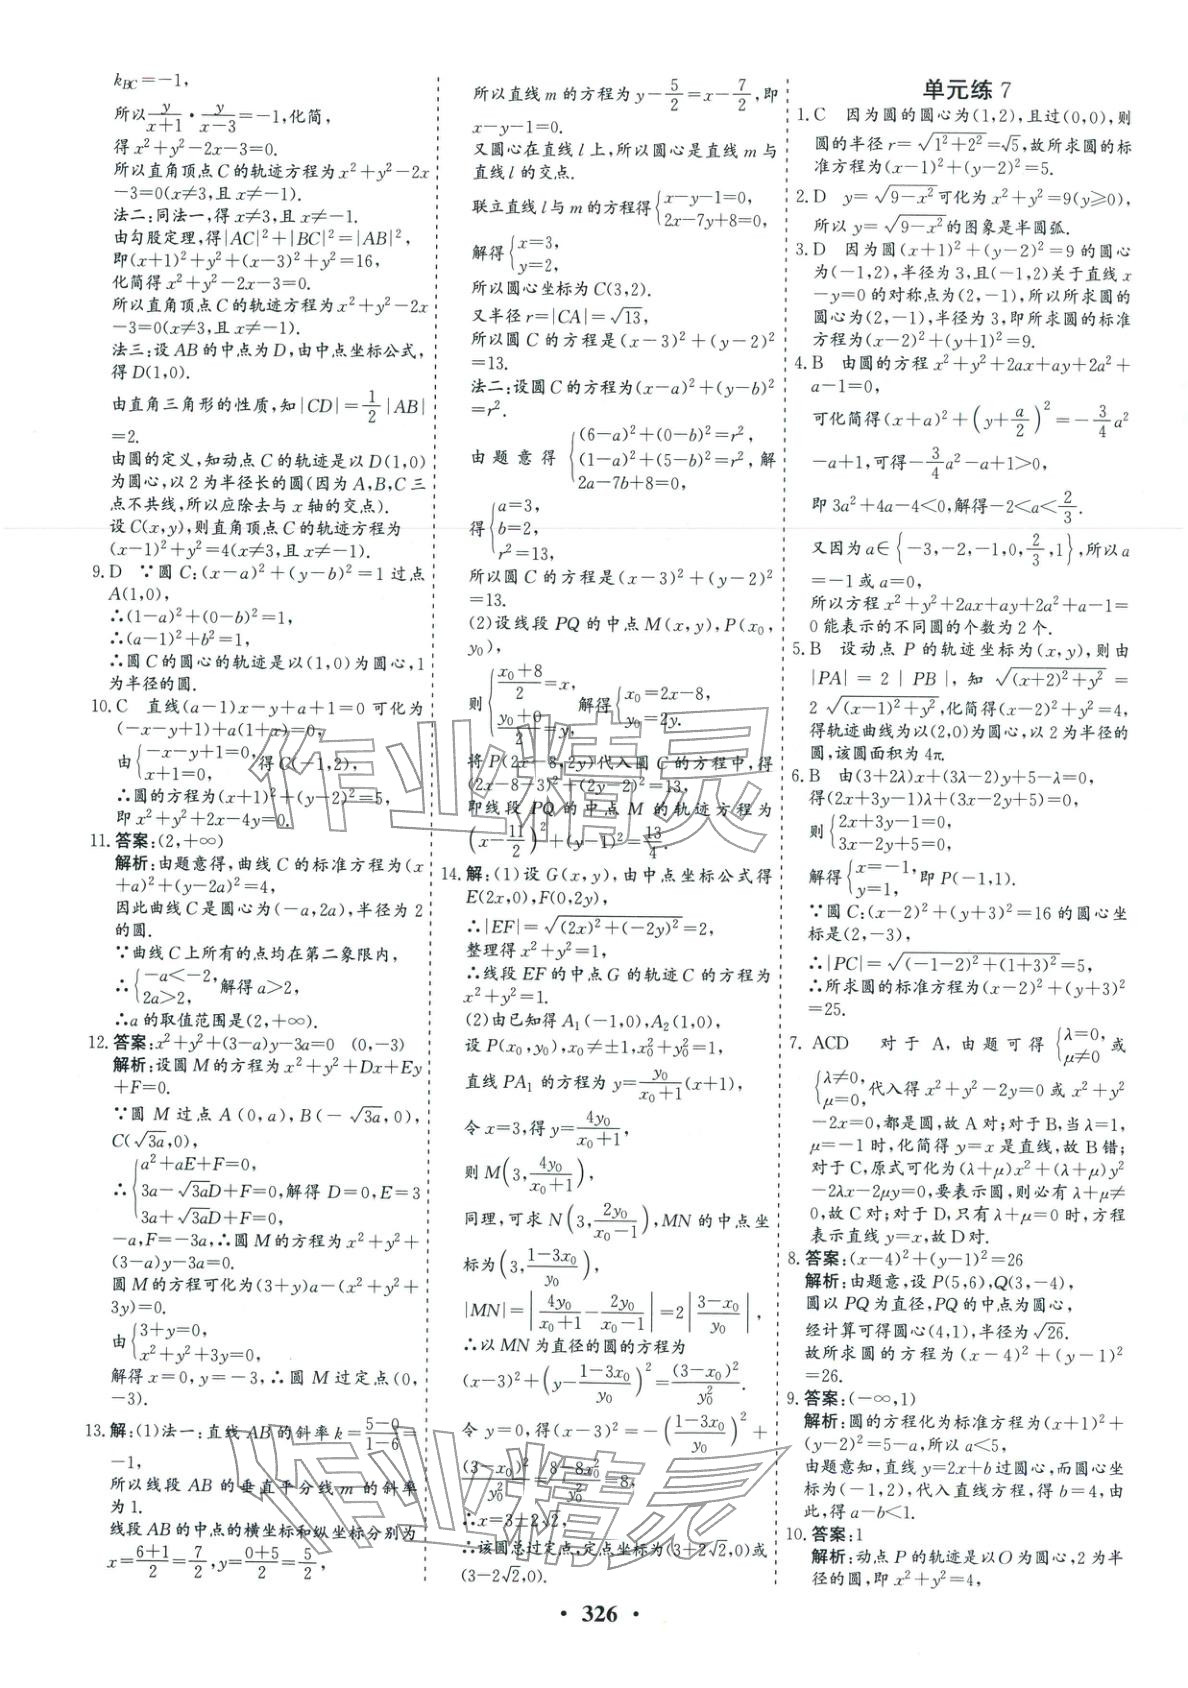 k_BC=-1,
所以y/(x+1)·y/(x-3)=-1,化简,
得x²+y²-2x-3=0.
所以直角顶点C的轨迹方程为x²+y²-2x
-3=0(x≠3,且x≠-1).
法二:同法一,得x≠3,且x≠-1.
由勾股定理,得|AC|²+|BC|²=|AB|²,
即(x+1)²+y²+(x-3)²+y²=16,
化简得x²+y²-2x-3=0.
所以直角顶点C的轨迹方程为x²+y²-2x
-3=0(x≠3,且x≠-1).
法三:设AB的中点为D,由中点坐标公式,
得D(1,0).
由直角三角形的性质,知|CD|=1/2|AB|
=2.
由圆的定义,知动点C的轨迹是以D(1,0)
为圆心,以2为半径长的圆(因为A,B,C三
点不共线,所以应除去与x轴的交点).
设C(x,y),则直角顶点C的轨迹方程为
(x-1)²+y²=4(x≠3,且x≠-1).
9.D ∵圆C:(x-a)²+(y-b)²=1过点
A(1,0),
∴(1-a)²+(0-b)²=1,
∴(a-1)²+b²=1,
∴圆C的圆心的轨迹是以(1,0)为圆心,1
为半径的圆.
10.C 直线(a-1)x-y+a+1=0可化为
(-x-y+1)+a(1+x)=0,
由{-x-y+1=0, x+1=0, 得C(-1,2),
∴圆的方程为(x+1)²+(y-2)²=5,
即x²+y²+2x-4y=0.
11.答案:(2,+∞)
解析:由题意得,曲线C的标准方程为(x
+a)²+(y-2a)²=4,
因此曲线C是圆心为(-a,2a),半径为2
的圆.
∵曲线C上所有的点均在第二象限内,
∴{-a<-2, 2a>2, 解得a>2,
∴a的取值范围是(2,+∞).
12.答案:x²+y²+(3-a)y-3a=0 (0,-3)
解析:设圆M的方程为x²+y²+Dx+Ey
+F=0.
∵圆M过点A(0,a),B(-√3a,0),
C(√3a,0),
∴{a²+aE+F=0, 3a-√3aD+F=0, 3a+√3aD+F=0, 解得D=0,E=3
-a,F=-3a,∴圆M的方程为x²+y²+
(3-a)y-3a=0.
圆M的方程可化为(3+y)a-(x²+y²+
3y)=0.
由{3+y=0, x²+y²+3y=0,
解得x=0,y=-3,∴圆M过定点(0,
-3).
13.解:(1)法一:直线AB的斜率k=(5-0)/(1-6)=
-1,
所以线段AB的垂直平分线m的斜率
为1.
线段AB的中点的横坐标和纵坐标分别为
x=(6+1)/2=7/2,y=(0+5)/2=5/2,
所以直线m的方程为y-5/2=x-7/2,即
x-y-1=0.
又圆心在直线l上,所以圆心是直线m与
直线l的交点.
联立直线l与m的方程得{x-y-1=0, 2x-7y+8=0,
解得{x=3, y=2,
所以圆心坐标为C(3,2).
又半径r=|CA|=√13,
所以圆C的方程是(x-3)²+(y-2)²
=13.
法二:设圆C的方程为(x-a)²+(y-b)²
=r².
由题意得{(6-a)²+(0-b)²=r², (1-a)²+(5-b)²=r², 2a-7b+8=0, 解
得{a=3, b=2, r²=13,
所以圆C的方程是(x-3)²+(y-2)²
=13.
(2)设线段PQ的中点M(x,y),P(x₀,
y₀),
则{(x₀+8)/2=x, (y₀+0)/2=y, 解得{x₀=2x-8, y₀=2y.
将P(2x-8,2y)代入圆C的方程中,得
(2x-8-3)²+(2y-2)²=13,
即线段PQ的中点M的轨迹方程为
(x-11/2)²+(y-1)²=13/4.
14.解:(1)设G(x,y),由中点坐标公式得
E(2x,0),F(0,2y),
∴|EF|=√((2x)²+(-2y)²)=2,
整理得x²+y²=1,
∴线段EF的中点G的轨迹C的方程为
x²+y²=1.
(2)由已知得A₁(-1,0),A₂(1,0),
设P(x₀,y₀),x₀≠±1,x₀²+y₀²=1,
直线PA₁的方程为y=y₀/(x₀+1)(x+1),
令x=3,得y=4y₀/(x₀+1),
则M(3,4y₀/(x₀+1)),
同理,可求N(3,2y₀/(x₀-1)),MN的中点坐
标为(3,(1-3x₀)/y₀),
|MN|=|4y₀/(x₀+1)-2y₀/(x₀-1)|=2|(3-x₀)/y₀|,
∴以MN为直径的圆的方程为
(x-3)²+(y-(1-3x₀)/y₀)²=(3-x₀)²/y₀²,
令y=0,得(x-3)²=-((1-3x₀)/y₀)²+
(3-x₀)²/y₀²=(8-8x₀²)/y₀²=8,
∴x=3±2√2,
∴该圆总过定点,定点坐标为(3+2√2,0)或
(3-2√2,0).
单元练7
1.C 因为圆的圆心为(1,2),且过(0,0),则
圆的半径r=√(1²+2²)=√5,故所求圆的标
准方程为(x-1)²+(y-2)²=5.
2.D y=√(9-x²)可化为x²+y²=9(y≥0),
所以y=√(9-x²)的图象是半圆弧.
3.D 因为圆(x+1)²+(y-2)²=9的圆心
为(-1,2),半径为3,且(-1,2)关于直线x
-y=0的对称点为(2,-1),所以所求圆的
圆心为(2,-1),半径为3,即所求圆的标准
方程为(x-2)²+(y+1)²=9.
4.B 由圆的方程x²+y²+2ax+ay+2a²+
a-1=0,
可化简得(x+a)²+(y+a/2)²=-3/4a²
-a+1,可得-3/4a²-a+1>0,
即3a²+4a-4<0,解得-2<a<2/3.
又因为a∈{-3,-2,-1,0,2/3,1},所以a
=-1或a=0,
所以方程x²+y²+2ax+ay+2a²+a-1=
0能表示的不同圆的个数为2个.
5.B 设动点P的轨迹坐标为(x,y),则由
|PA|=2|PB|,知√((x+2)²+y²)=
2√((x-1)²+y²),化简得(x-2)²+y²=4,
得轨迹曲线为以(2,0)为圆心,以2为半径的
圆,该圆面积为4π.
6.B 由(3+2λ)x+(3λ-2)y+5-λ=0,
得(2x+3y-1)λ+(3x-2y+5)=0,
则{2x+3y-1=0, 3x-2y+5=0,
解得{x=-1, y=1, 即P(-1,1).
∵圆C:(x-2)²+(y+3)²=16的圆心坐
标是(2,-3),
∴|PC|=√((-1-2)²+(1+3)²)=5,
∴所求圆的标准方程为(x-2)²+(y+3)²
=25.
7. ACD 对于A,由题可得{λ=0, μ≠0 或
{λ≠0, μ=0, 代入得x²+y²-2y=0或x²+y²
-2x=0,都是圆,故A对;对于B,当λ=1,
μ=-1时,化简得y=x是直线,故B错;
对于C,原式可化为(λ+μ)x²+(λ+μ)y²
-2λx-2μy=0,要表示圆,则必有λ+μ≠
0,故C对;对于D,只有λ+μ=0时,方程
表示直线y=x,故D对.
8.答案:(x-4)²+(y-1)²=26
解析:由题意,设P(5,6),Q(3,-4),
圆以PQ为直径,PQ的中点为圆心,
经计算可得圆心(4,1),半径为√26.
故所求圆的方程为(x-4)²+(y-1)²
=26.
9.答案:(-∞,1)
解析:圆的方程化为标准方程为(x+1)²+
(y-2)²=5-a,所以a<5,
由题意知,直线y=2x+b过圆心,而圆心坐
标为(-1,2),代入直线方程,得b=4,由
此,得a-b<1.
10.答案:1
解析:动点P的轨迹是以O为圆心,2为半
径的圆,即x²+y²=4,
• 326 •
作业精灵
作业精灵